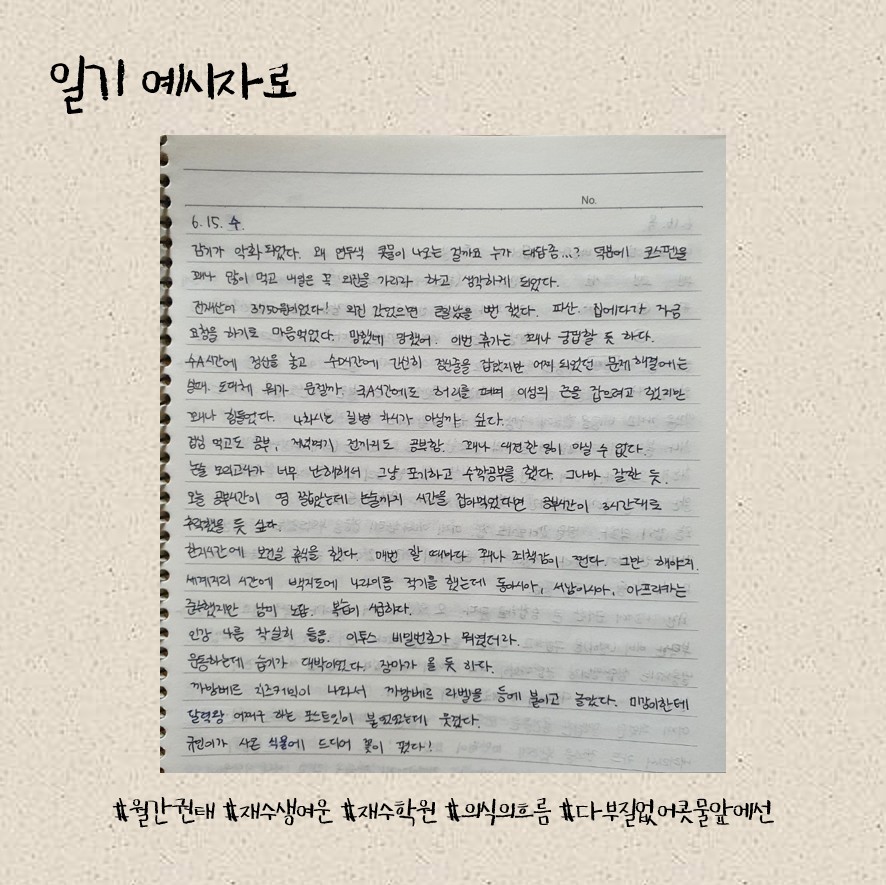 일기 예시자료
No.
6.15. 수.
감기가 악화 되었다. 왜 연두색 콧물이 나오는 걸까요 누가 대답좀...? 덕분에 코스펜을
꽤나 많이 먹고 내일은 꼭 외진을 가리라 하고 생각하게 되었다.
전재산이 3750원이었다! 외진 갔었으면 큰일났을 뻔 했다. 파산. 집에다가 자금
요청을 하기로 마음먹었다. 망했네 망했어. 이번 휴가는 꽤나 궁핍할 듯 하다.
수A시간에 정신을 놓고 수D시간에 간신히 정신줄을 잡았지만 어찌 되었던 문제해결에는
실패. 도대체 뭐가 문젤까. 국A시간에도 허리를 펴며 이성의 끈을 잡으려고 했지만
꽤나 힘들었다. 4차시는 질병 차시가 아닐까 싶다.
점심 먹고도 공부, 저녁먹기 전까지도 공부함. 꽤나 대견한 일이 아닐 수 없다.
논술 모의고사가 너무 난해해서 그냥 포기하고 수학공부를 했다. 그나마 잘한 듯.
오늘 공부시간이 영 짧았는데 논술까지 시간을 잡아먹었다면 공부시간이 3시간대로
추락했을 듯 싶다.
한지시간에 보건실 휴식을 했다. 매번 할 때마다 꽤나 죄책감이 쩐다. 그만 해야지.
세계지리 시간에 백지도에 나라이름 적기를 했는데 동아시아, 서남아시아, 아프리카는
준수했지만 남미 노답. 복습이 시급하다.
인강 나름 착실히 들음. 이투스 비밀번호가 뭐였더라.
운동하는데 습기가 대박이었다. 장마가 올 듯 하다.
까망베르 치즈케익이 나와서 까망베르 라벨을 등에 붙이고 놀았다. 미깡이한테
달력왕 어쩌구 하는 포스트잇이 붙었었는데 웃겼다.
규민이가 사온 식물에 드디어 꽃이 폈다!
#월간권태 #재수생여운 #재수학원 #의식의흐름 #다부질없어콧물앞에선